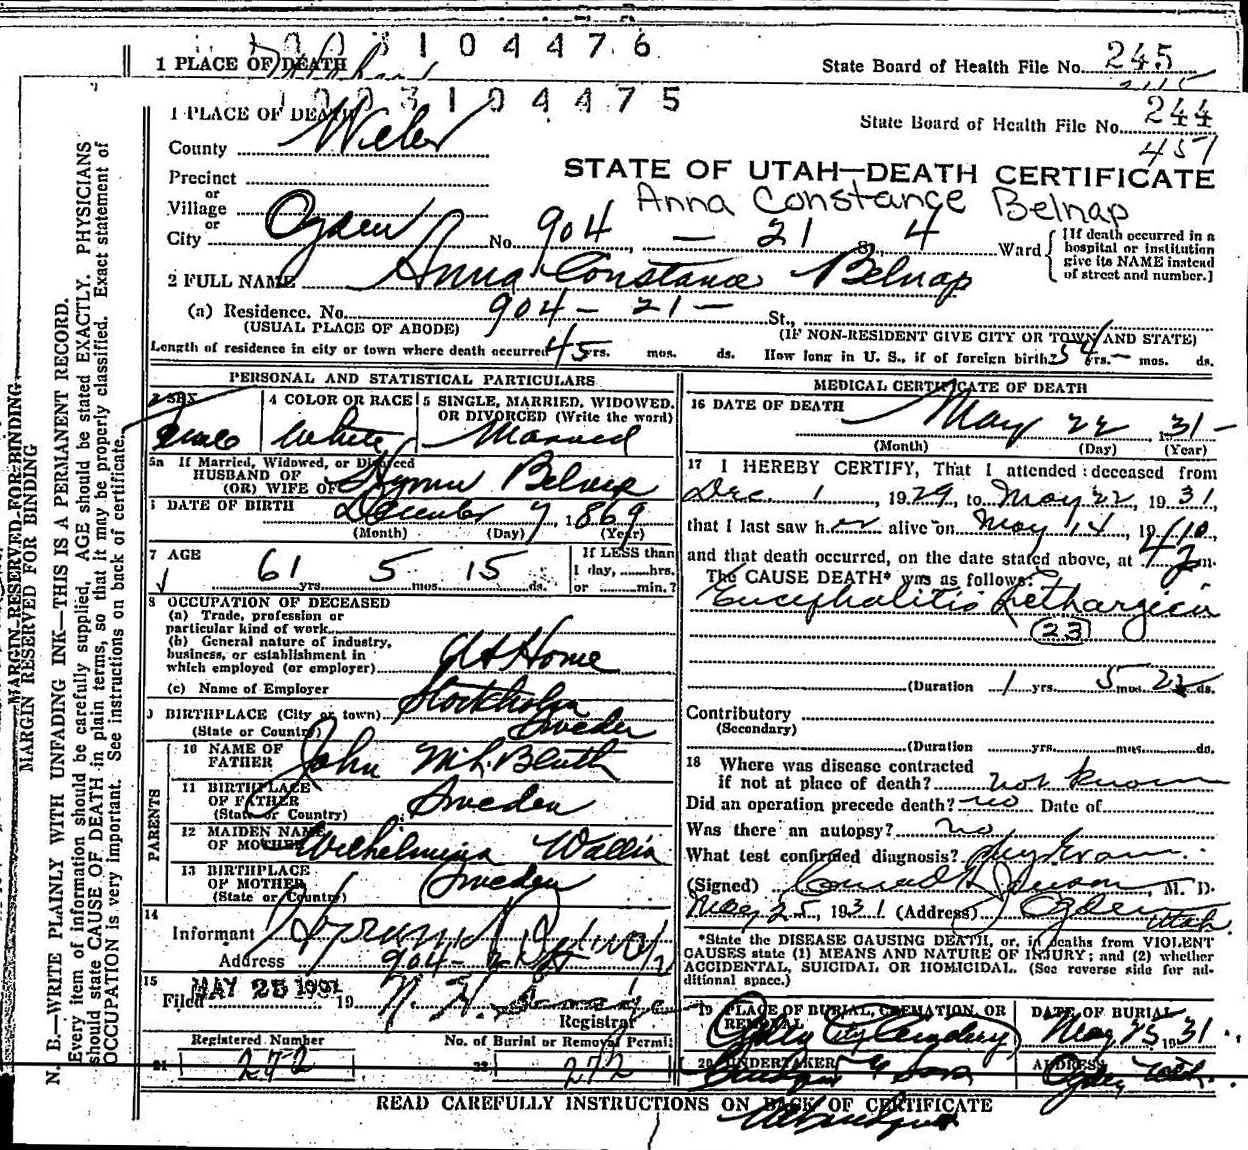 1003104476
1 PLACE OF DEATH
State Board of Health File No. 245
1003104475
1 PLACE OF DEATH
State Board of Health File No. 244
457
County Weber
STATE OF UTAH—DEATH CERTIFICATE
Precinct
or
Village
or
Anna Constance Belnap
City Ogden No. 904 — 21 S, 4 Ward
[If death occurred in a
hospital or institution
give its NAME instead
of street and number.]
2 FULL NAME Anna Constance Belnap
(a) Residence. No. 904 — 21 — St.,
(USUAL PLACE OF ABODE)
(IF NON-RESIDENT GIVE CITY OR TOWN AND STATE)
Length of residence in city or town where death occurred 45 yrs. mos. ds. How long in U. S., if of foreign birth? 54 yrs. — mos. ds.
PERSONAL AND STATISTICAL PARTICULARS
3 SEX
4 COLOR OR RACE
5 SINGLE, MARRIED, WIDOWED,
OR DIVORCED (Write the word)
Female
White
Married
5a If Married, Widowed, or Divorced
HUSBAND OF
(OR) WIFE OF Hyrum Belnap
DATE OF BIRTH December 7, 1869
(Month) (Day) (Year)
7 AGE
61 yrs. 5 mos. 15 ds.
If LESS than
1 day, hrs.
or min.?
8 OCCUPATION OF DECEASED
(a) Trade, profession or
particular kind of work
(b) General nature of industry,
business, or establishment in
which employed (or employer)
At Home
(c) Name of Employer
BIRTHPLACE (City or town) Stockholm
(State or Country) Sweden
PARENTS
10 NAME OF
FATHER John M. L. Bluth
11 BIRTHPLACE
OF FATHER
(State or Country)
Sweden
12 MAIDEN NAME
OF MOTHER Wilhelmina Wallin
13 BIRTHPLACE
OF MOTHER
(State or Country)
Sweden
14
Informant Hyrum Belnap
Address 904 - 21 St
15
Filed MAY 25 1931 19
Registrar
Registered Number
No. of Burial or Removal Permit
21 272
22 272
MEDICAL CERTIFICATE OF DEATH
16 DATE OF DEATH May 22 1931
(Month) (Day) (Year)
17 I HEREBY CERTIFY, That I attended deceased from
Dec. 1, 1929, to May 22, 1931,
that I last saw her alive on May 14, 19
and that death occurred, on the date stated above, at m.
The CAUSE DEATH* was as follows:
Encephalitis Lethargica
23
(Duration 1 yrs. 5 mos. 22 ds.
Contributory
(Secondary)
(Duration yrs. mos. ds.
18 Where was disease contracted
if not at place of death? not known
Did an operation precede death? no Date of
Was there an autopsy? no
What test confirmed diagnosis? Phys Exam.
(Signed) Conrad H Jenson, M. D.
May 25, 1931 (Address) Ogden Utah
*State the DISEASE CAUSING DEATH, or, in deaths from VIOLENT
CAUSES state (1) MEANS AND NATURE OF INJURY; and (2) whether
ACCIDENTAL, SUICIDAL OR HOMICIDAL. (See reverse side for ad-
ditional space.)
19 PLACE OF BURIAL, CREMATION, OR
REMOVAL
Ogden City Cemetery
DATE OF BURIAL
May 25, 1931
20 UNDERTAKER
Lindquist & Sons
ADDRESS
Ogden Utah.
READ CAREFULLY INSTRUCTIONS ON BACK OF CERTIFICATE
MARGIN RESERVED FOR BINDING
MARGIN RESERVED FOR BINDING
N. B.—WRITE PLAINLY WITH UNFADING INK—THIS IS A PERMANENT RECORD.
Every item of information should be carefully supplied. AGE should be stated EXACTLY. PHYSICIANS
should state CAUSE OF DEATH in plain terms, so that it may be properly classified. Exact statement of
OCCUPATION is very important. See instructions on back of certificate.